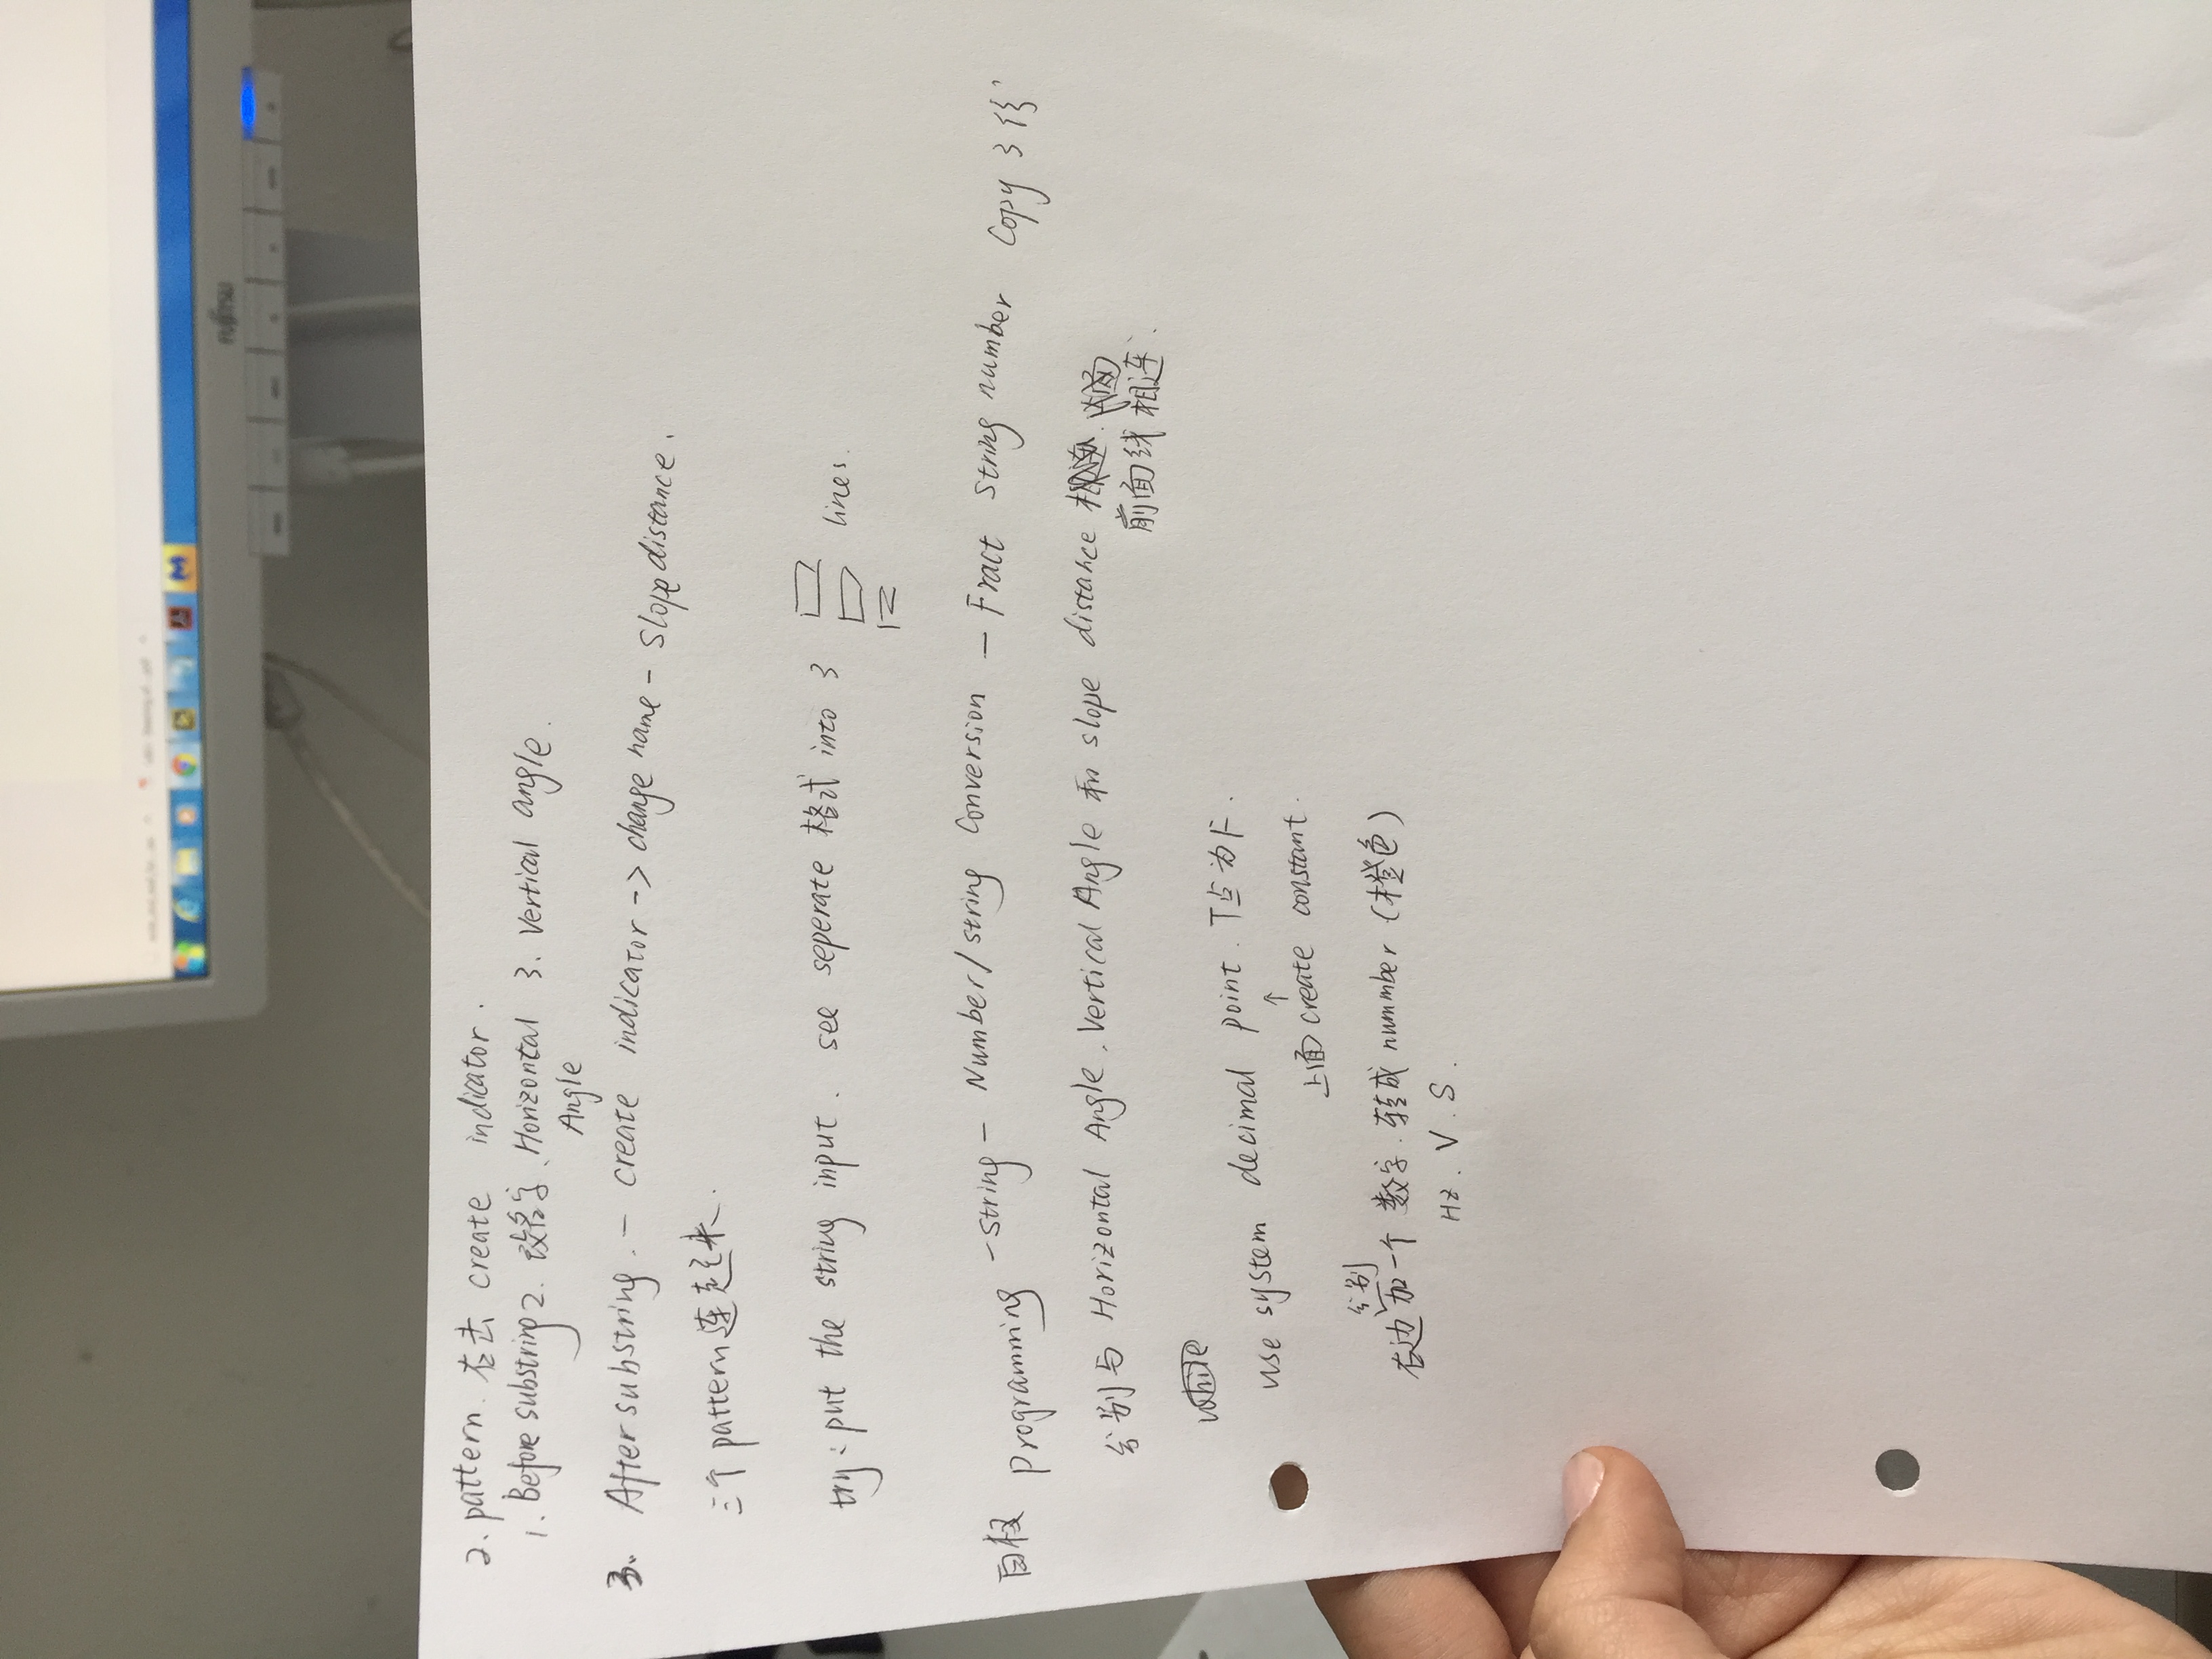 FUJITSU
2. pattern. 右击 create indicator.
1. Before substring 2. 改名字. Horizontal Angle 3. Vertical angle.
3. After substring. - create indicator -> change name - Slope distance.
三个 pattern 连起来.
try: put the string input. see seperate 格式 into 3 lines.
白板 programming - string - Number/string Conversion - Fract String number Copy 3份
分别与 Horizontal Angle. Vertical Angle 和 slope distance
前面线相连.
use system decimal point. T点为F.
↑
上面 create constant.
分别
右边加一个数字. 转成 nummber (橙色)
Hz. V. S.